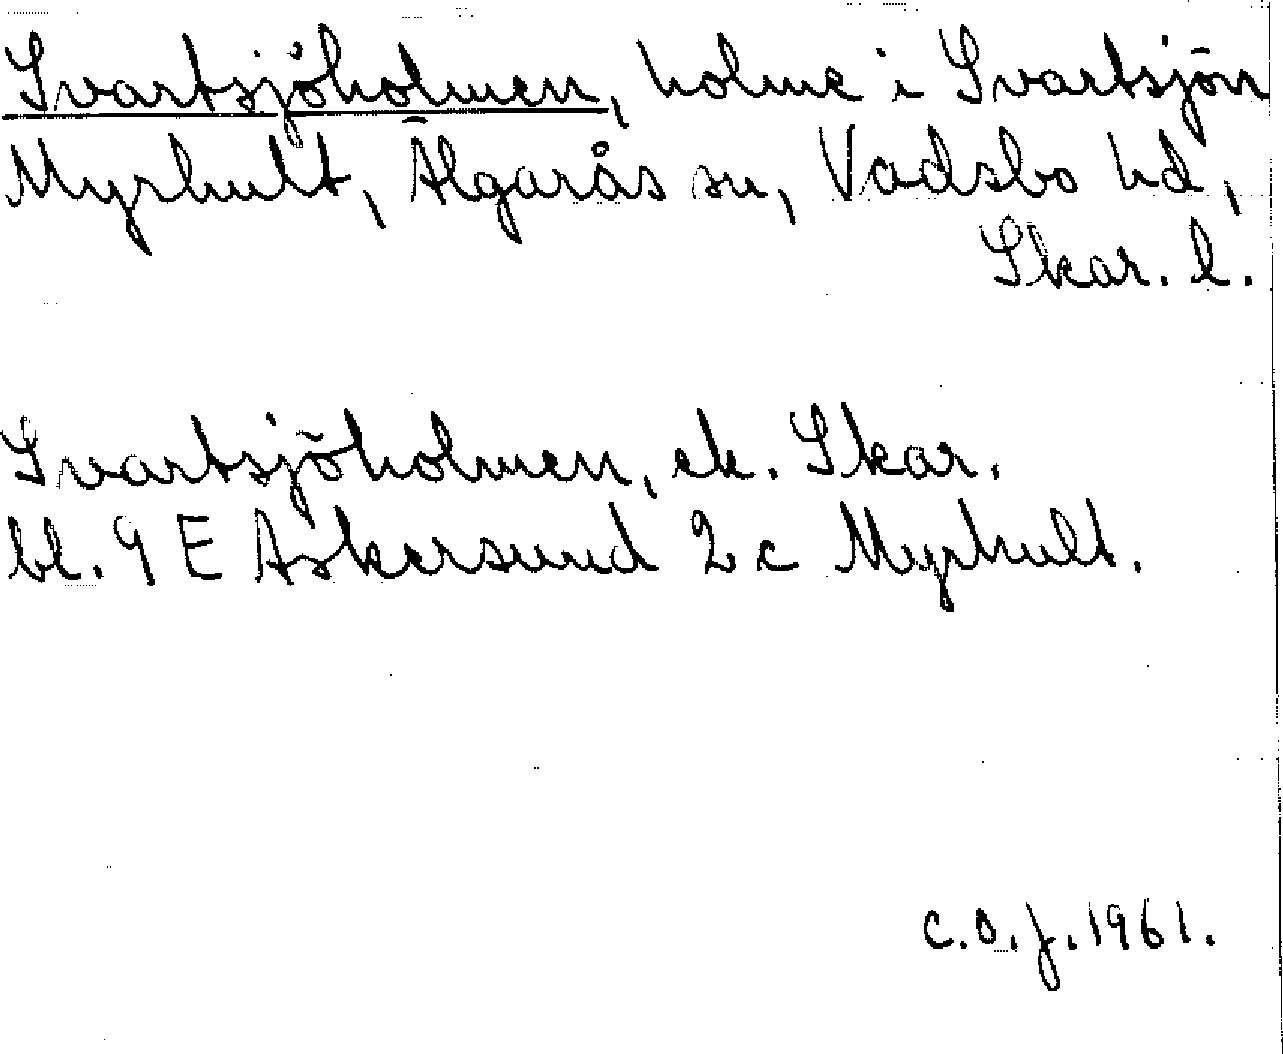 Svartsjöholmen, holme i Svartsjön
Myrhult, Älgarås sn, Vadsbo hd,
Skar. l.
Svartsjöholmen, ek. Skar.
bl. 9 E Askersund 2 c Myrhult.
C.O.J. 1961.